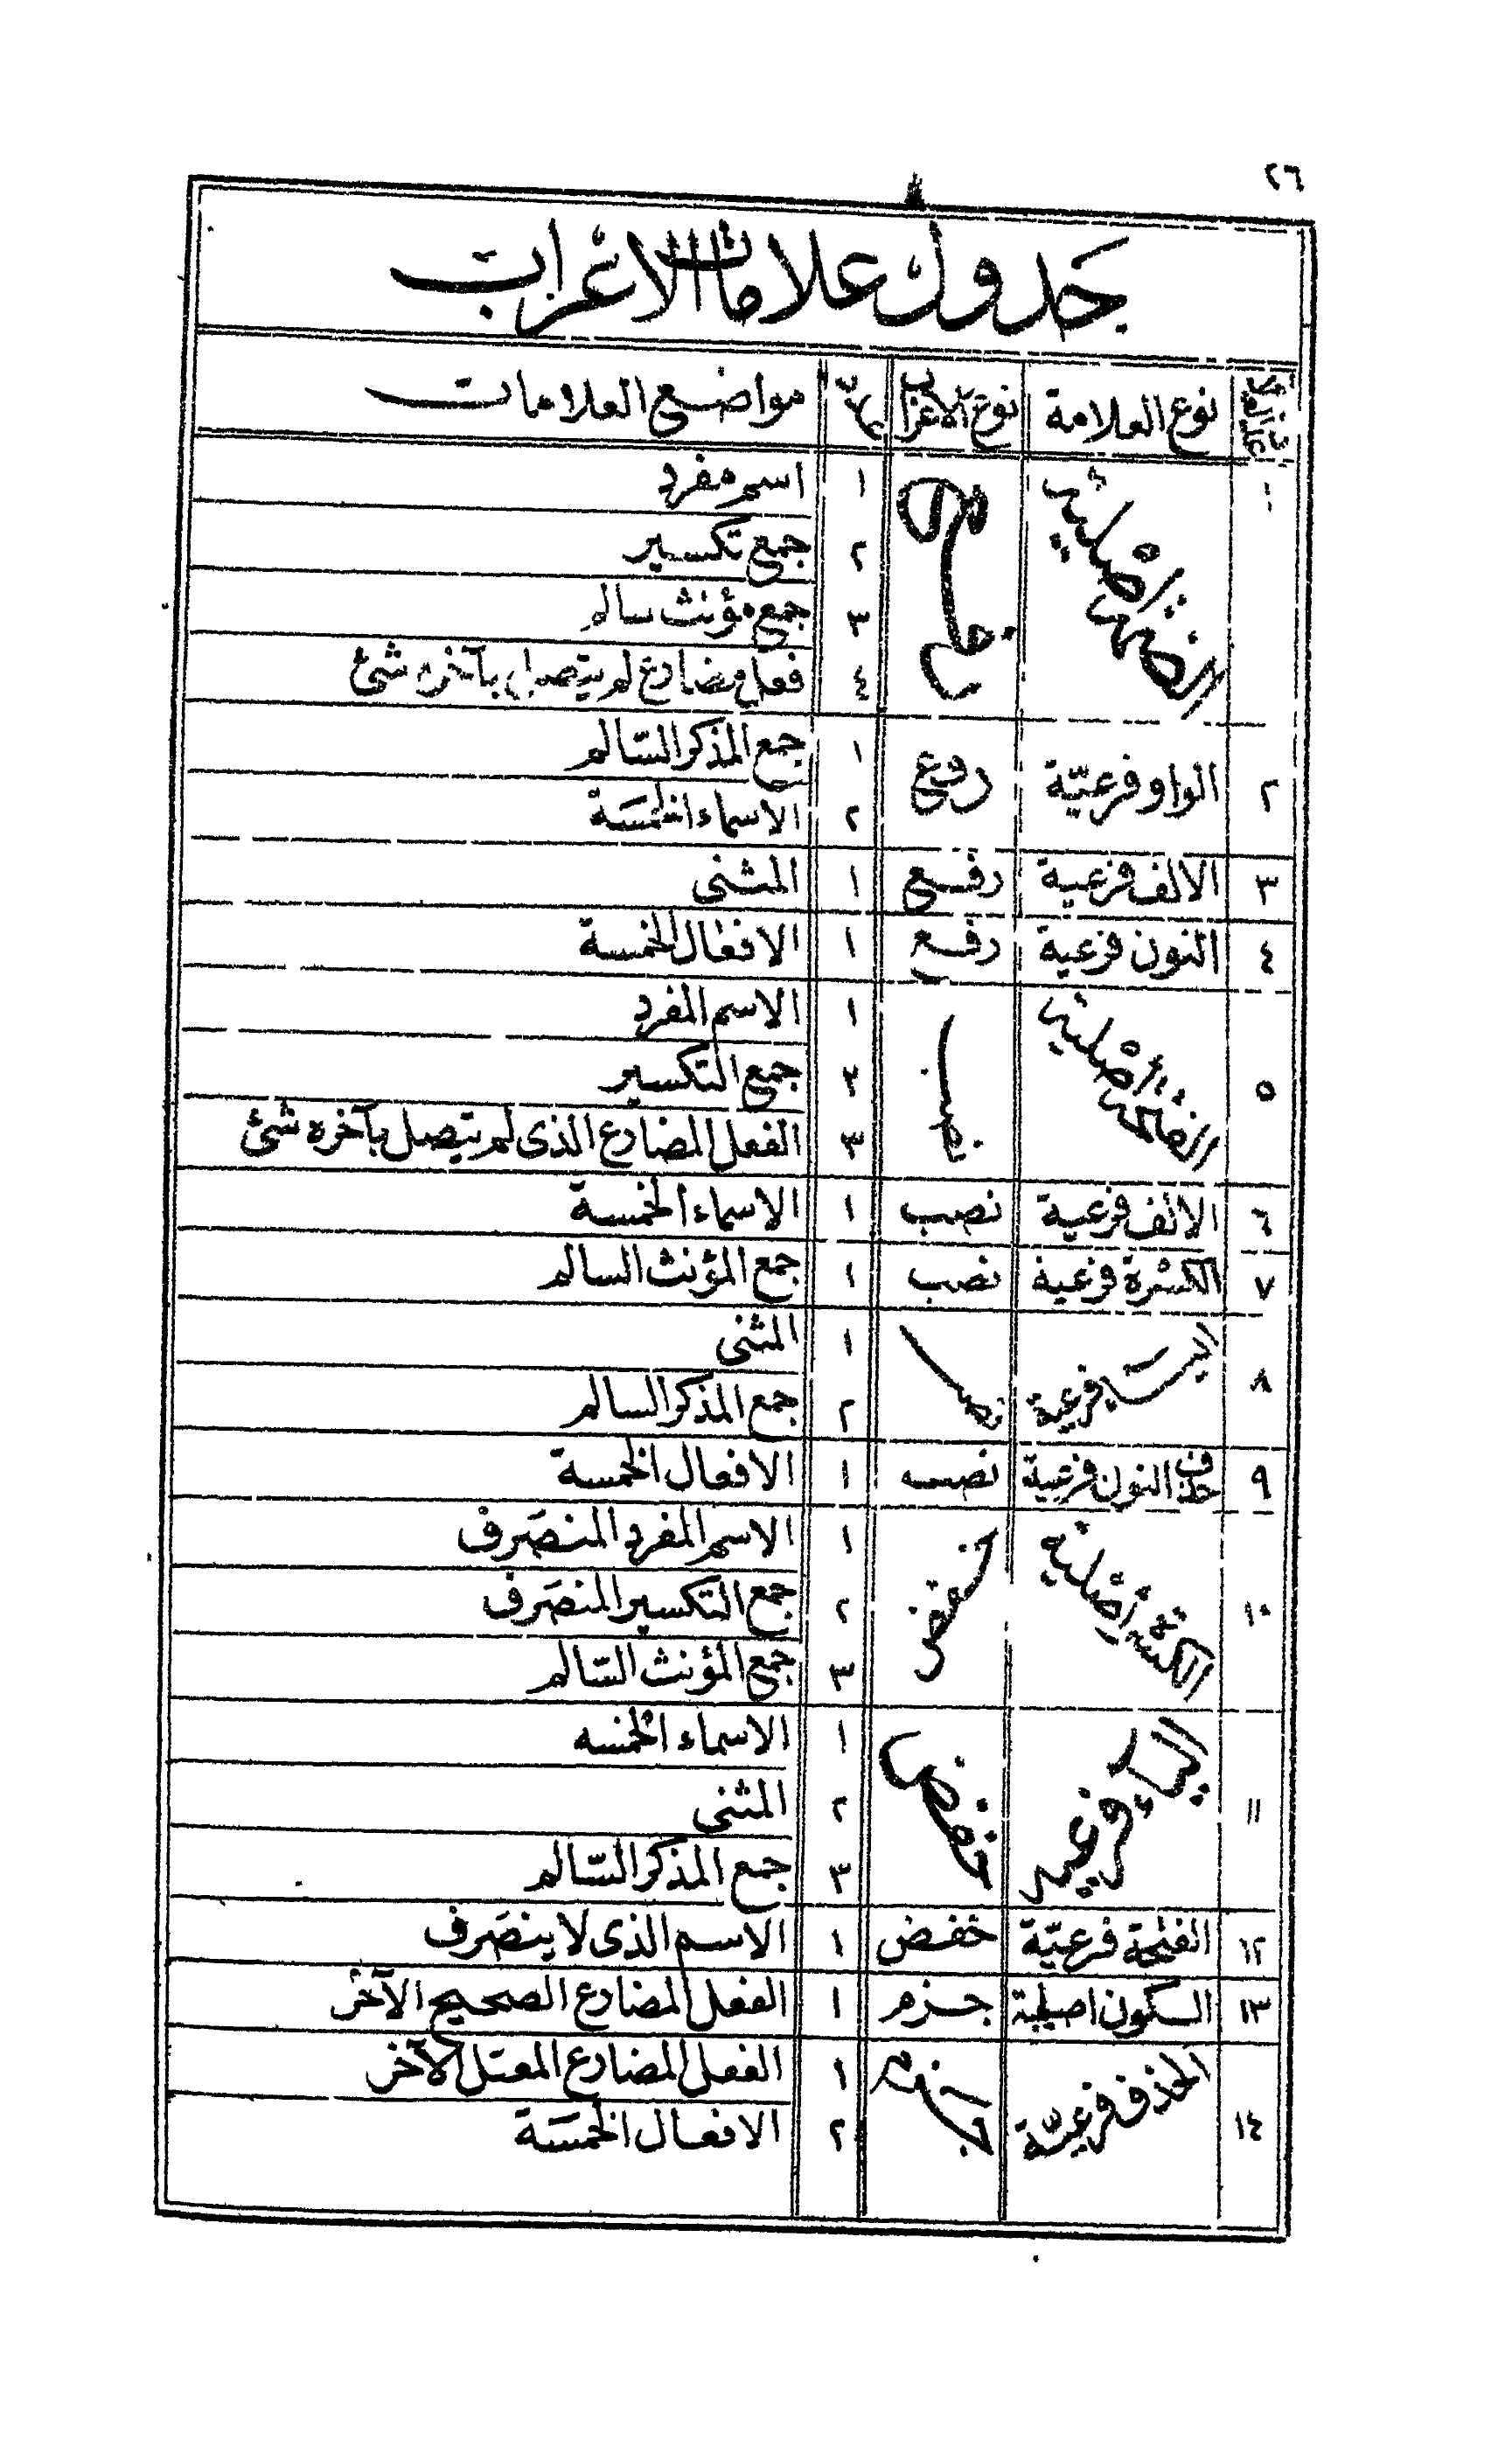 ٢٦
جدول علامات الاعراب
نوع العلامة نوع الاعراب مواضع العلامات
١ الضمة أصلية رفع ١ اسم مفرد
٢ جمع تكسير
٣ جمع مؤنث سالم
٤ فعل مضارع لم يتصل بآخره شئ
٢ الواو فرعيّة رفع ١ جمع المذكر السّالم
٢ الاسماء الخمسَة
٣ الالف فرعية رفع ١ المثنى
٤ النون فرعية رفع ١ الافعال الخمسة
٥ الفتحة أصلية نصب ١ الاسم المفرد
٢ جمع التكسير
٣ الفعل المضارع الذى لم يتصل بآخره شئ
٦ الالف فرعية نصب ١ الاسماء الخمسة
٧ الكسرة فرعية نصب ١ جمع المؤنث السالم
٨ اليـــاء فرعية نصب ١ المثنى
٢ جمع المذكر السالم
٩ حذف النون فرعية نصب ١ الافعال الخمسة
١٠ الكسرة أصلية خفض ١ الاسم المفرد المنصَرف
٢ جمع التكسير المنصَرف
٣ جمع المؤنث السّالم
١١ الياء فرعية خفض ١ الاسماء الخمسه
٢ المثنى
٣ جمع المذكر السّالم
١٢ الفتحة فرعيّة خفض ١ الاسم الذى لا ينصَرف
١٣ السكون اصلية جزم ١ الفعل المضارع الصحيح الآخر
١٤ الحذف فرعيّة جزم ١ الفعل المضارع المعتل الآخر
٢ الافعال الخمسَة